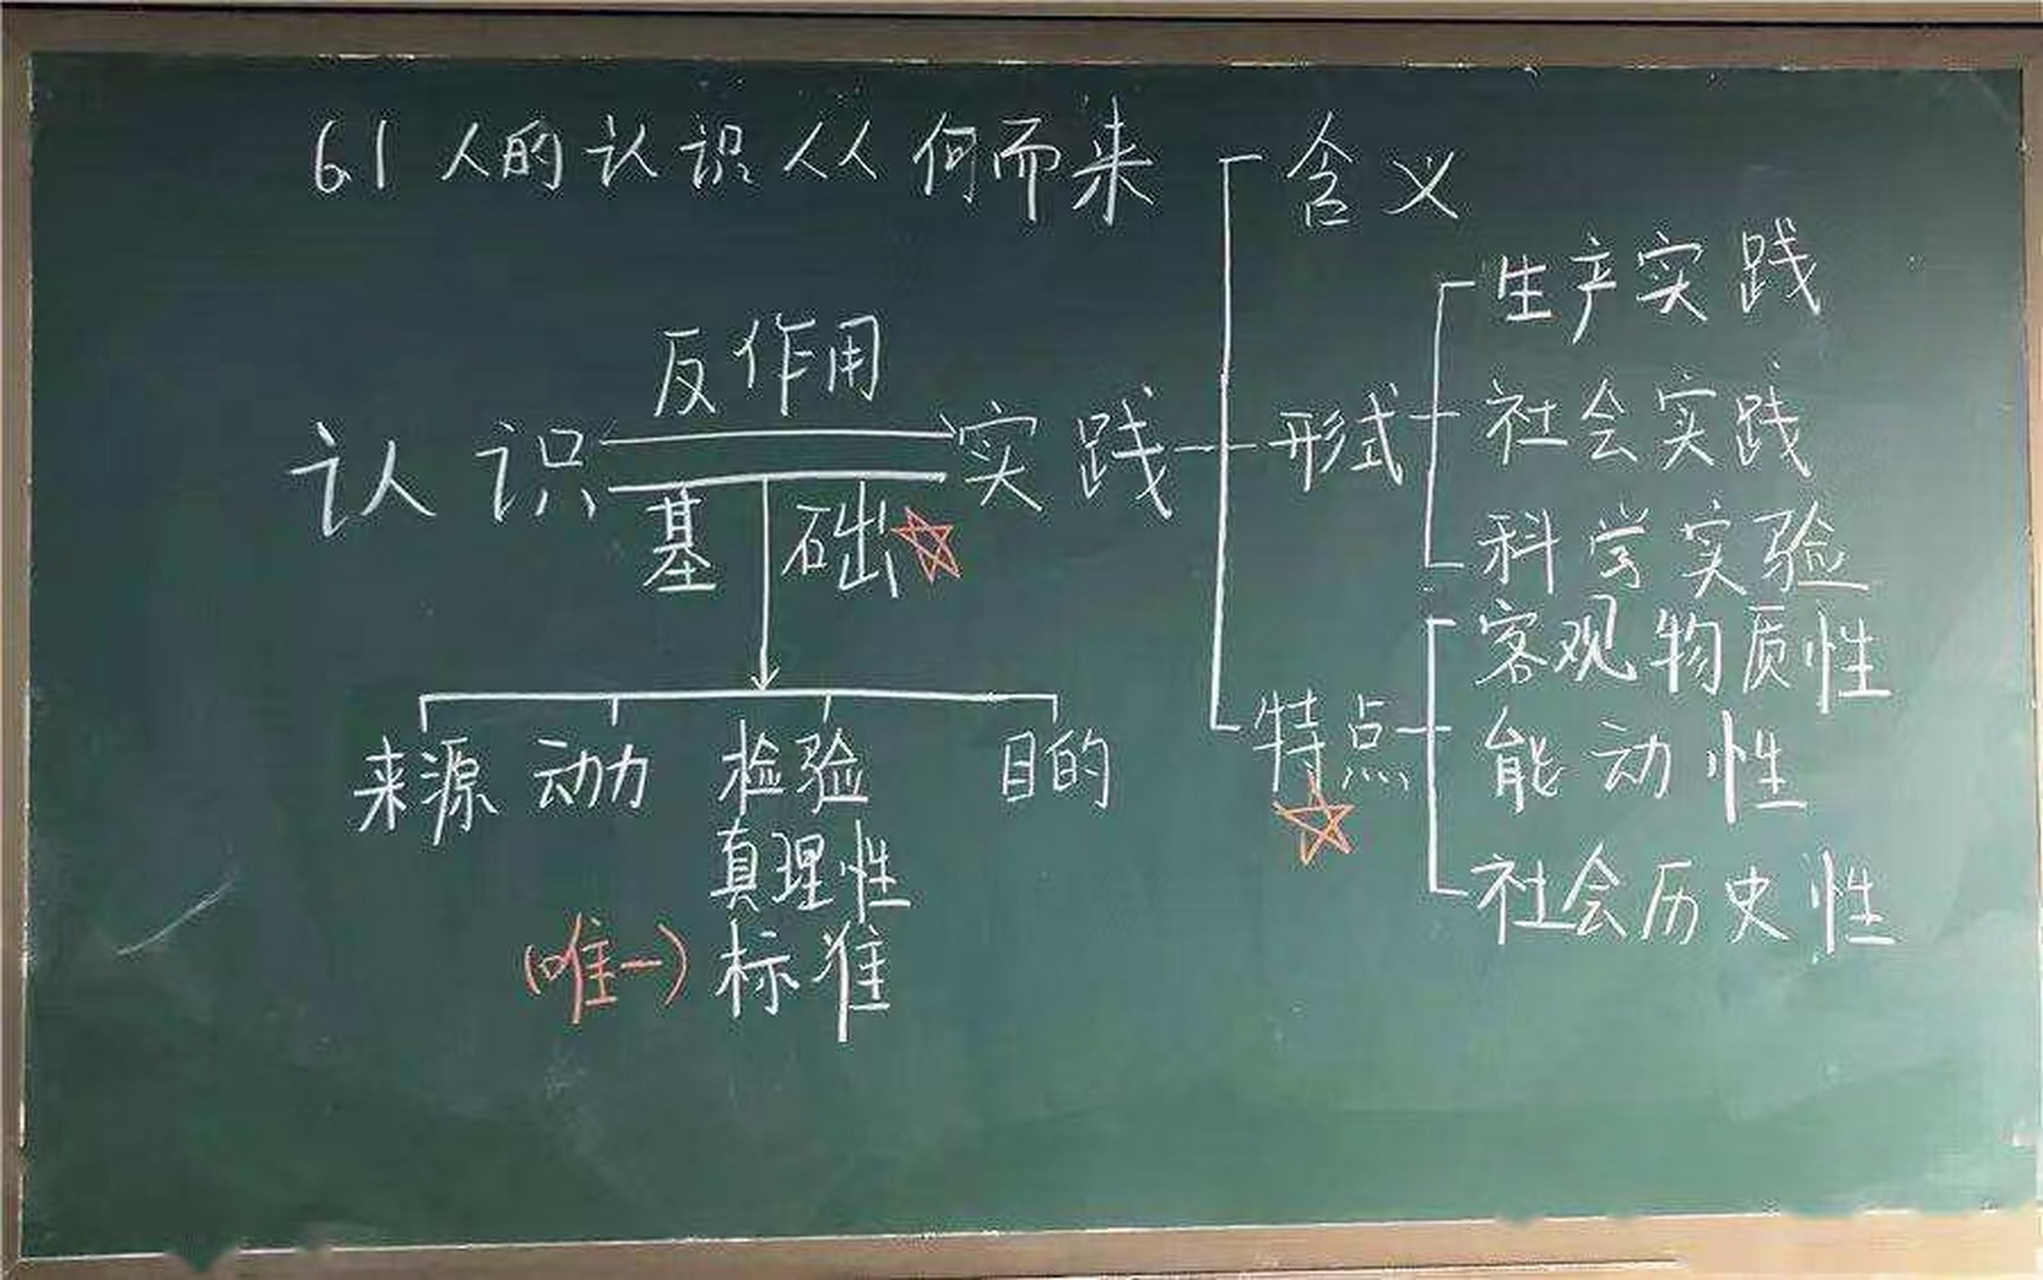 6.1 人的认识从何而来
反作用
认识 实践
基础
来源 动力 检验 目的
真理性
(唯一) 标准
含义
形式
生产实践
社会实践
科学实验
特点
客观物质性
能动性
社会历史性